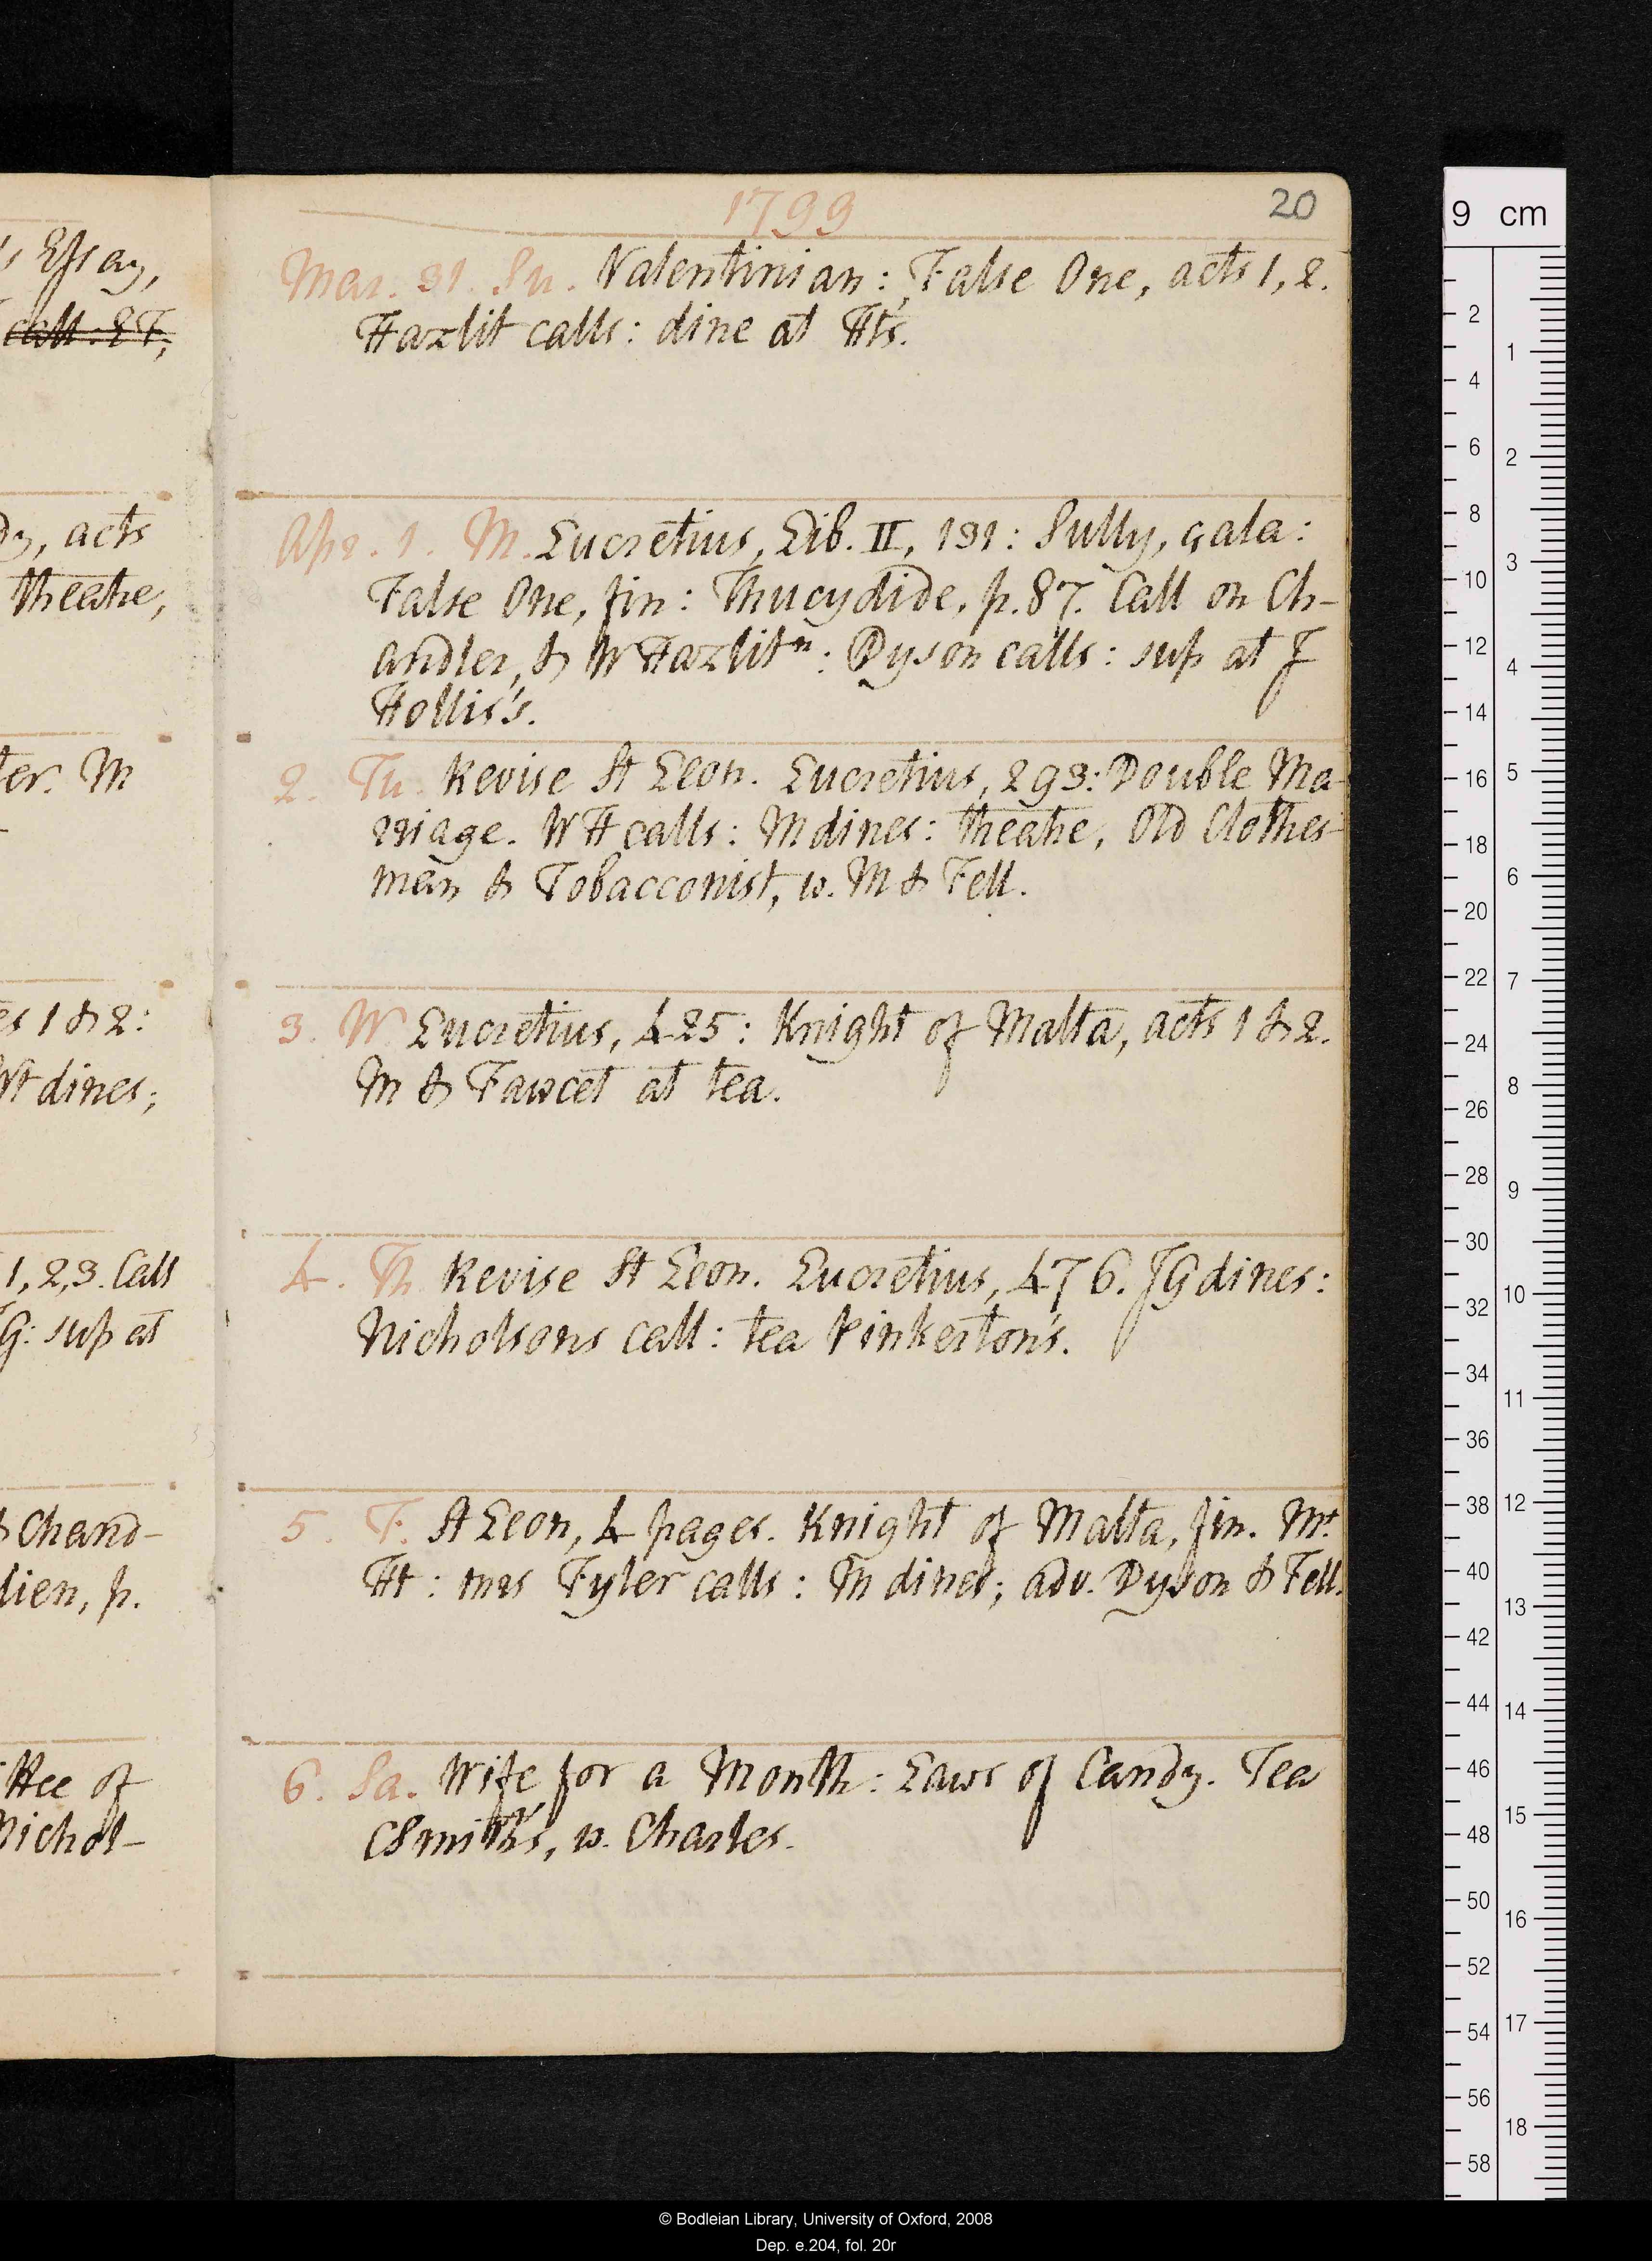 's Essay,
call: ET,
dy, acts
theatre,
ter. M
es 1 & 2:
Ht dines;
1, 2, 3. Call
G: sup at
& Chand-
lien, p.
ttee of
Nichol-
1799
20
Mar. 31. Su. Valentinian: False One, acts 1, 2.
Hazlit calls: dine at Ht's.
Apr. 1. M. Lucretius, Lib. II, 131: Sully, çala:
False One, fin: Thucydide, p. 87. Call on Ch-
andler, & W Hazlit ⁿ: Dyson calls: sup at J
Hollis's.
2. Tu. Revise St Leon. Lucretius, 293: Double Ma-
rriage. WH calls: M dines: theatre, Old Clothes-
man & Tobacconist, w. M & Fell.
3. W. Lucretius, 425: Knight of Malta, acts 1 & 2.
M & Fawcet at tea.
4. Th. Revise St Leon. Lucretius, 476. JG dines:
Nicholsons call: tea Pinkerton's.
5. F. St Leon, 4 pages. Knight of Malta, fin. Mt
Ht: mrs Fyler calls: M dines; adv. Dyson & Fell.
6. Sa. Wife for a Month: Laws of Candy. Tea
CSmith's, w. Charles.
9 cm
2
4
6
8
10
12
14
16
18
20
22
24
26
28
30
32
34
36
38
40
42
44
46
48
50
52
54
56
58
1
2
3
4
5
6
7
8
9
10
11
12
13
14
15
16
17
18
© Bodleian Library, University of Oxford, 2008
Dep. e.204, fol. 20r